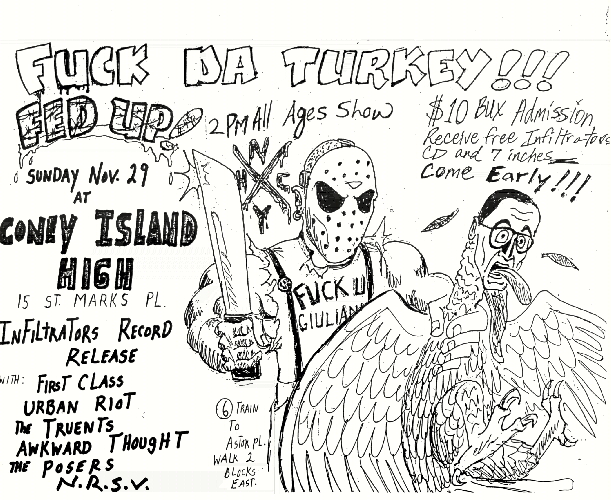 FUCK DA TURKEY!!!
FED UP
2PM All Ages Show
$10 BUX Admission
Receive free Infiltrators
CD and 7 inches
Come Early!!!
SUNDAY NOV. 29
AT
CONEY ISLAND
HIGH
15 ST. MARKS PL.
INFILTRATORS RECORD
RELEASE
WITH: FIRST CLASS
URBAN RIOT
THE TRUENTS
AWKWARD THOUGHT
THE POSERS
N.R.S.V.
N Y
H C
FUCK U
GIULIANI
6 TRAIN
TO
ASTOR PL.
WALK 2
BLOCKS
EAST.